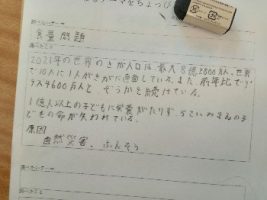 食量問題
2021年の世界のきが人口は最大8億2800万人、世界
で10人に1人がきがに直面している。また前年比でプ
ラス4600万人と ぞうかを続けている。
1億人以上の子どもに栄養がたりず、
どもの命が失われている。
原因
自然災害、ふんそう